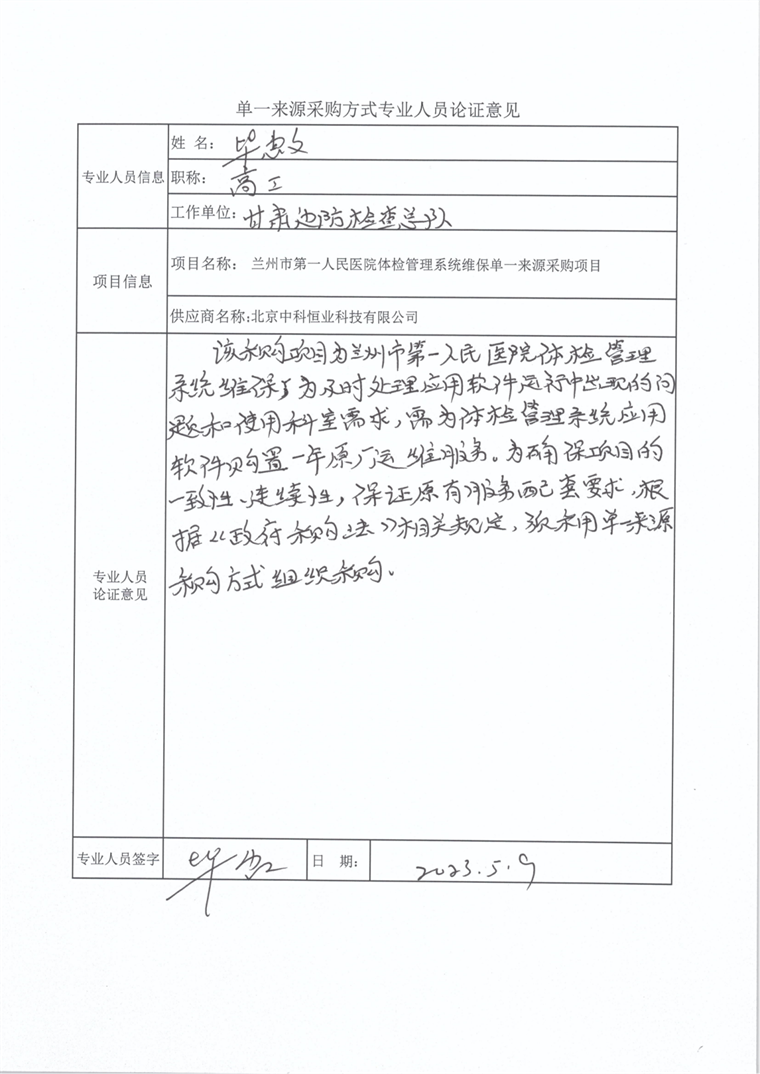 单一来源采购方式专业人员论证意见
专业人员信息
姓 名： 毕惠文
职称： 高工
工作单位： 甘肃边防检查总队
项目信息
项目名称： 兰州市第一人民医院体检管理系统维保单一来源采购项目
供应商名称:北京中科恒业科技有限公司
专业人员
论证意见
该采购项目为兰州市第一人民医院体检管理
系统维保，为及时处理应用软件运行中出现的问
题和使用科室需求，需为体检管理系统应用
软件购置一年原厂运维服务。为确保项目的
一致性、连续性，保证原有服务配套要求，根
据《政府采购法》相关规定，须采用单一来源
采购方式组织采购。
专业人员签字
日 期： 2023.5.9